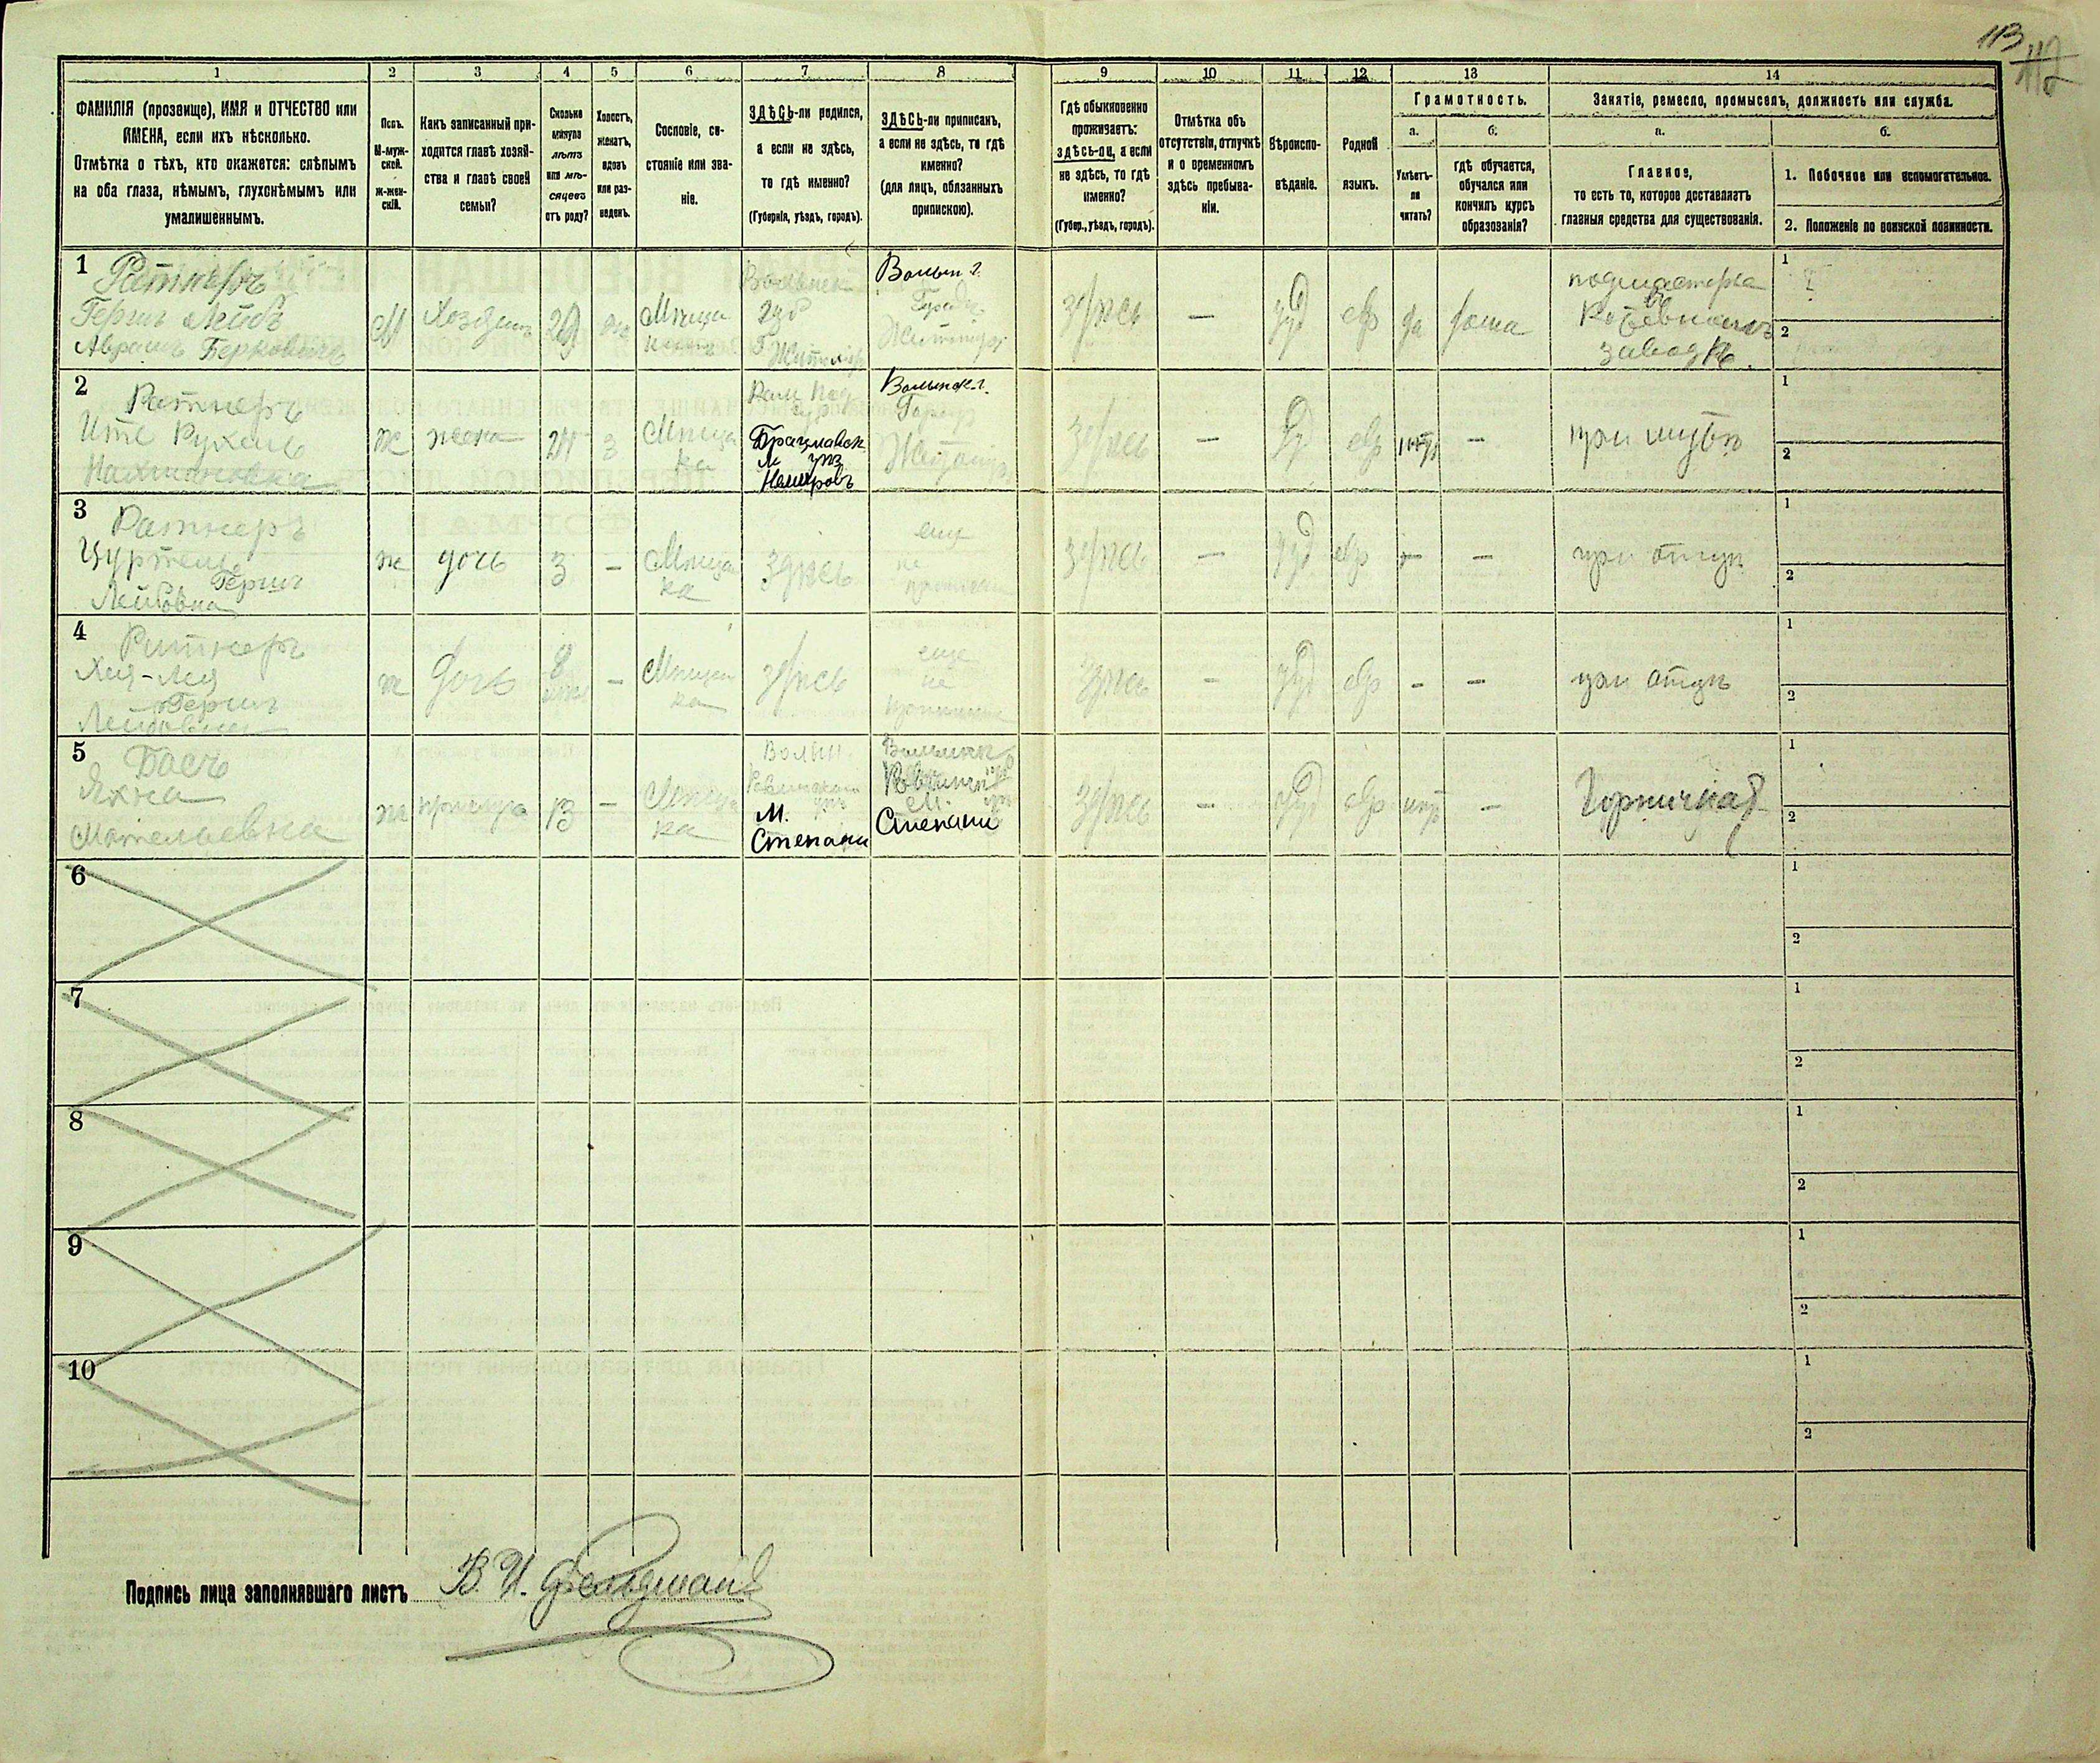 113
112
1
2
3
4
5
6
7
8
9
10
11
12
13
14
ФАМИЛІЯ (прозвище), ИМЯ и ОТЧЕСТВО или
ИМЕНА, если ихъ нѣсколько.
Отмѣтка о тѣхъ, кто окажется: слѣпымъ
на оба глаза, нѣмымъ, глухонѣмымъ или
умалишеннымъ.
Полъ.
М-муж-
ской.
ж-жен-
скій.
Какъ записанный при-
ходится главѣ хозяй-
ства и главѣ своей
семьи?
Сколько
минуло
лѣтъ
или мѣ-
сяцевъ
отъ роду?
Холостъ,
женатъ,
вдовъ
или раз-
веденъ.
Сословіе, со-
стояніе или зва-
ніе.
ЗДѢСЬ-ли родился,
а если не здѣсь,
то гдѣ именно?
(Губернія, уѣздъ, городъ).
ЗДѢСЬ-ли приписанъ,
а если не здѣсь, то гдѣ
именно?
(для лицъ, обязанныхъ
припискою).
Гдѣ обыкновенно
проживаетъ:
здѣсь-ли, а если
не здѣсь, то гдѣ
именно?
(Губер., уѣздъ, городъ).
Отмѣтка объ
отсутствіи, отлучкѣ
и о временномъ
здѣсь пребыва-
ніи.
Вѣроиспо-
вѣданіе.
Родной
языкъ.
Грамотность.
а.
б.
Умѣетъ-
ли
читать?
гдѣ обучается,
обучался или
кончилъ курсъ
образованія?
Занятіе, ремесло, промыселъ, должность или служба.
а.
б.
Главное,
то есть то, которое доставляетъ
главныя средства для существованія.
1. Побочное или вспомогательное.
2. Положеніе по воинской повинности.
1
Ратнеръ
Гершъ Лейбъ
Аврамъ Берковичъ
М
Хозяинъ
29
Волынск
губ
Г. Житомір
Волын г.
Городъ
Житомір
здѣсь
—
іуд
евр
да
дома
подмастерье
заводѣ
1
2
2
Ратнеръ
Ите Рухель
Нахмановна
ж
жена
Мѣща
ка
Брацлавск
м уѣз
Немировъ
Волынск г.
Город
Житомір
здѣсь
—
іуд
евр
нѣтъ
—
при мужѣ
1
2
3
Ратнеръ
Цуртель
Гершъ
Лейбовна
ж
дочь
3
—
Мѣща
ка
здѣсь
еще
не
здѣсь
—
іуд
евр
—
—
при отцѣ
1
2
4
Ратнеръ
Хая-Лея
Гершъ
Лейбовна
ж
дочь
8
—
Мѣщан
ка
здѣсь
еще
не
здѣсь
—
іуд
евр
—
—
при отцѣ
1
2
5
Басъ
Яхна
ж
прислуга
13
—
Мѣща
ка
Волын
Ровенского
уѣз
М.
Степани
М.
Степани
здѣсь
—
іуд
евр
нѣтъ
—
Горничная
1
2
6
1
2
7
1
2
8
1
2
9
1
2
10
1
2
Подпись лица заполнявшаго листъ В. И. Фельдманъ